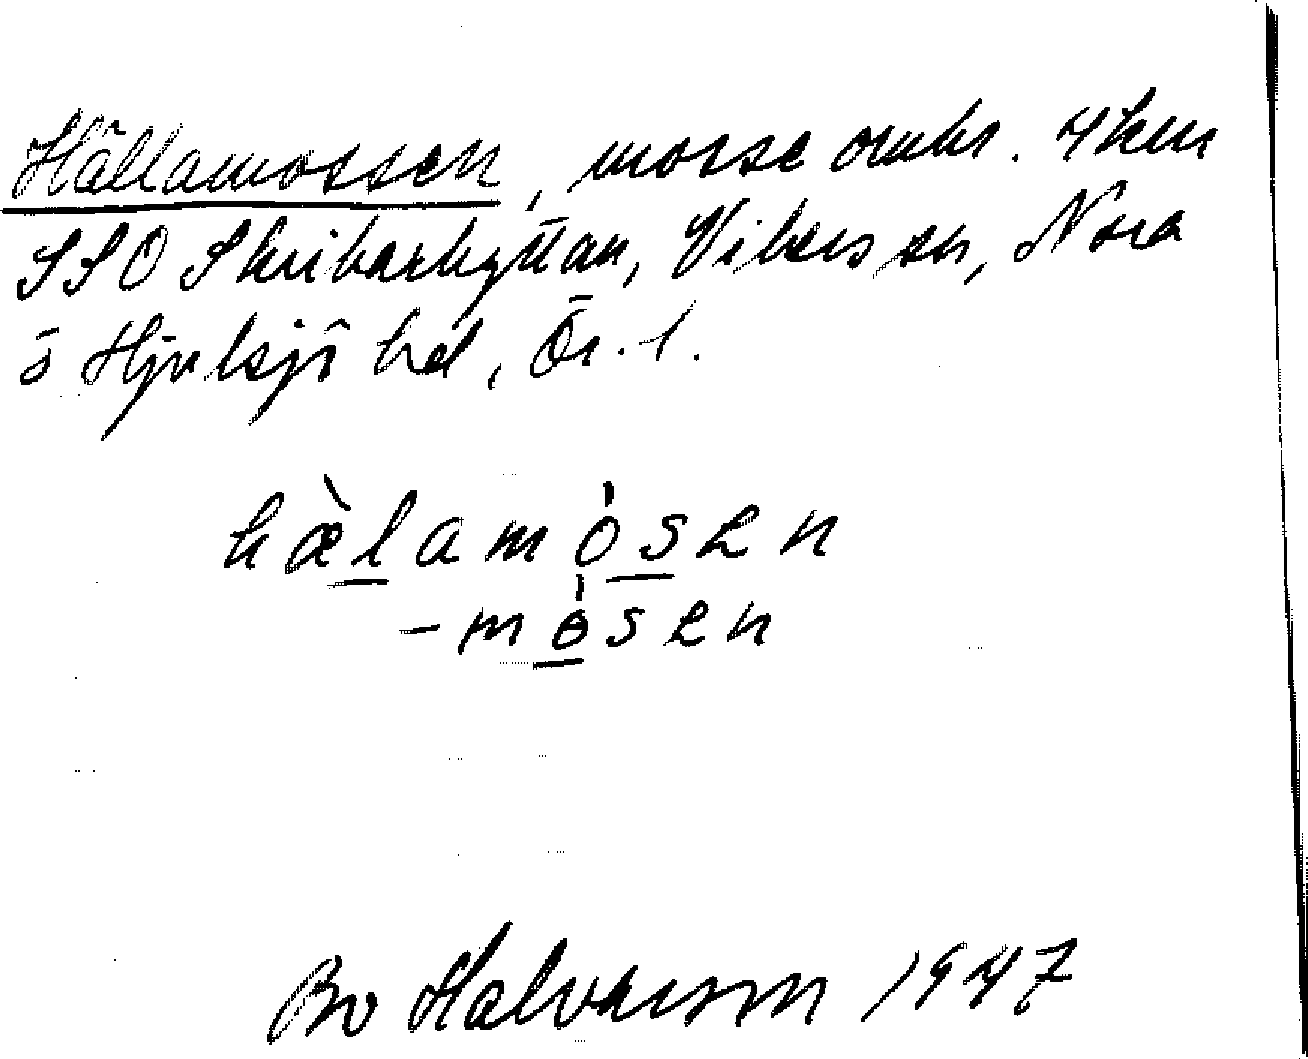 Hällamossen, mosse omkr. 4 km
SSO Skrikarhyttan, Vikers sn, Nora
o Hjulsjö hd, Ör. l.
hæ̀lamósen
-mósen
Bo Halvarson 1947